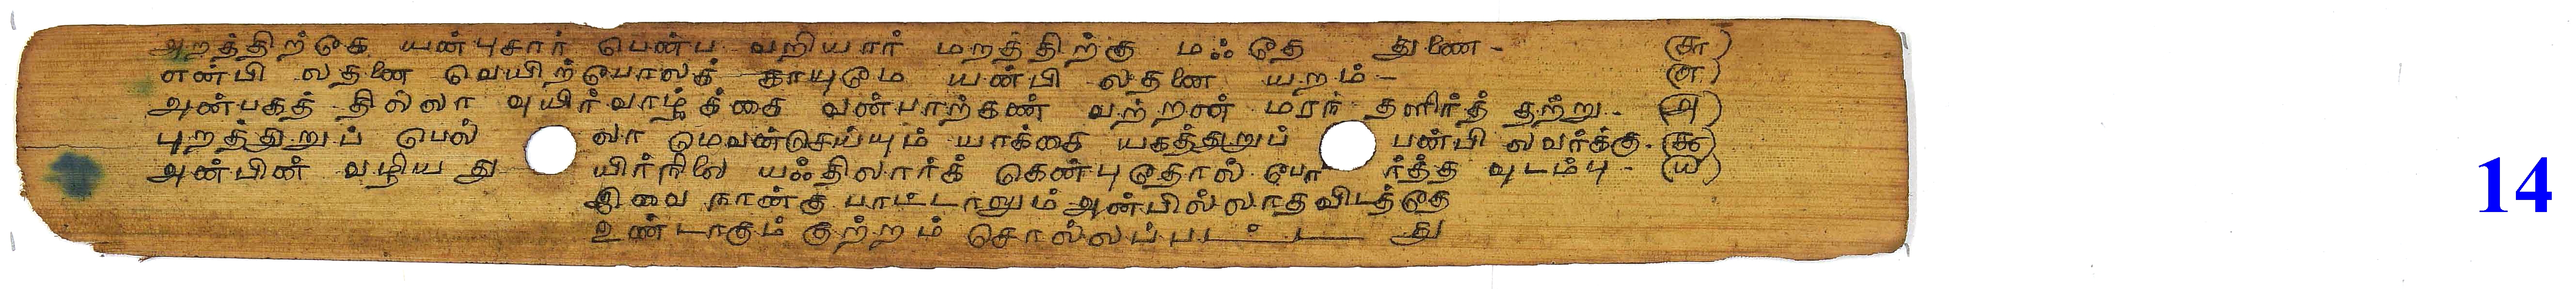 அறத்திற்கே யன்புசார் பென்ப வறியார் மறத்திற்கு மஃதே துணை - (௬)
என்பி லதனை வெயிற்போலக் காயுமே யன்பி லதனை யறம் - (௭)
அன்பகத் தில்லா வுயிர்வாழ்க்கை வன்பாற்கண் வற்றன் மரந் தளிர்த் தற்று - (௮)
புறத்துறுப் பெல்லா மெவன்செய்யும் யாக்கை யகத்துறுப் பன்பி லவர்க்கு - (௯)
அன்பின் வழிய துயிர்நிலை யஃதிலார்க் கென்புதோல் போர்த்த வுடம்பு - (௰)
இவை நான்கு பாட்டானும் அன்பில்லாதவிடத்தே
உண்டாகும் குற்றம் சொல்லப்பட்டது
14